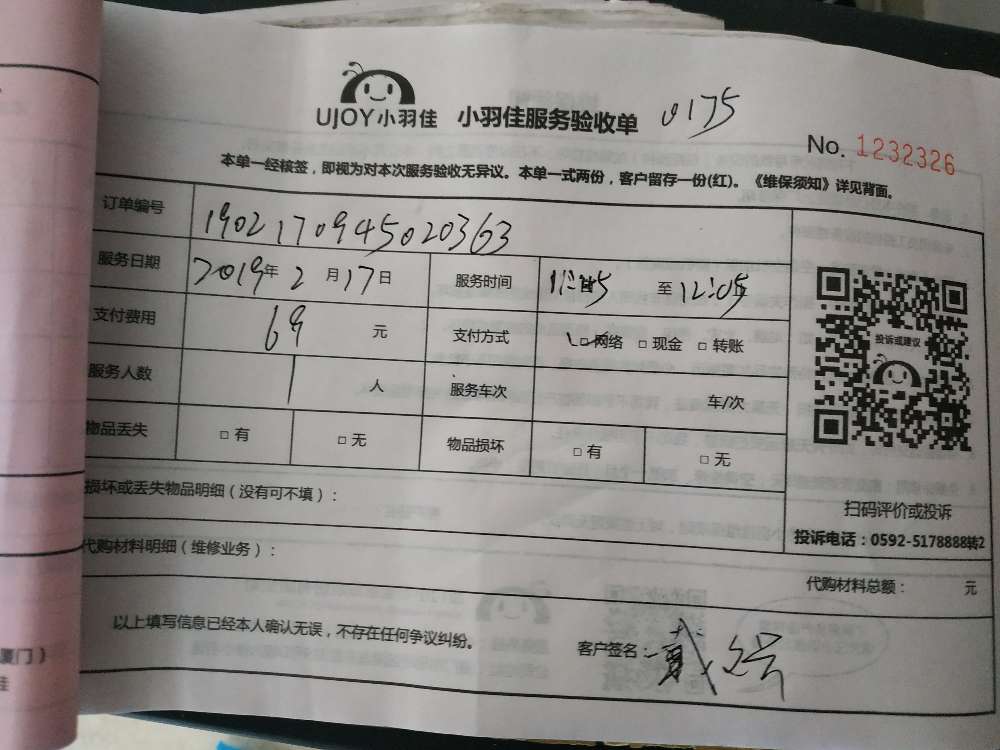 UJOY小羽佳 小羽佳服务验收单 0175
No. 1232326
本单一经核签，即视为对本次服务验收无异议。本单一式两份，客户留存一份(红)。《维保须知》详见背面。
订单编号 190217094502036​3
服务日期 2019年 2 月 17 日 服务时间 11:45 至 12:05
支付费用 69 元 支付方式 □网络 □现金 □转账
服务人数 1 人 服务车次 车/次
物品丢失 □有 □无 物品损坏 □有 □无
投诉或建议
扫码评价或投诉
投诉电话：0592-5178888转2
损坏或丢失物品明细（没有可不填）：
代购材料明细（维修业务）：
代购材料总额： 元
以上填写信息已经本人确认无误，不存在任何争议纠纷。
客户签名：戴
厦门）
佳